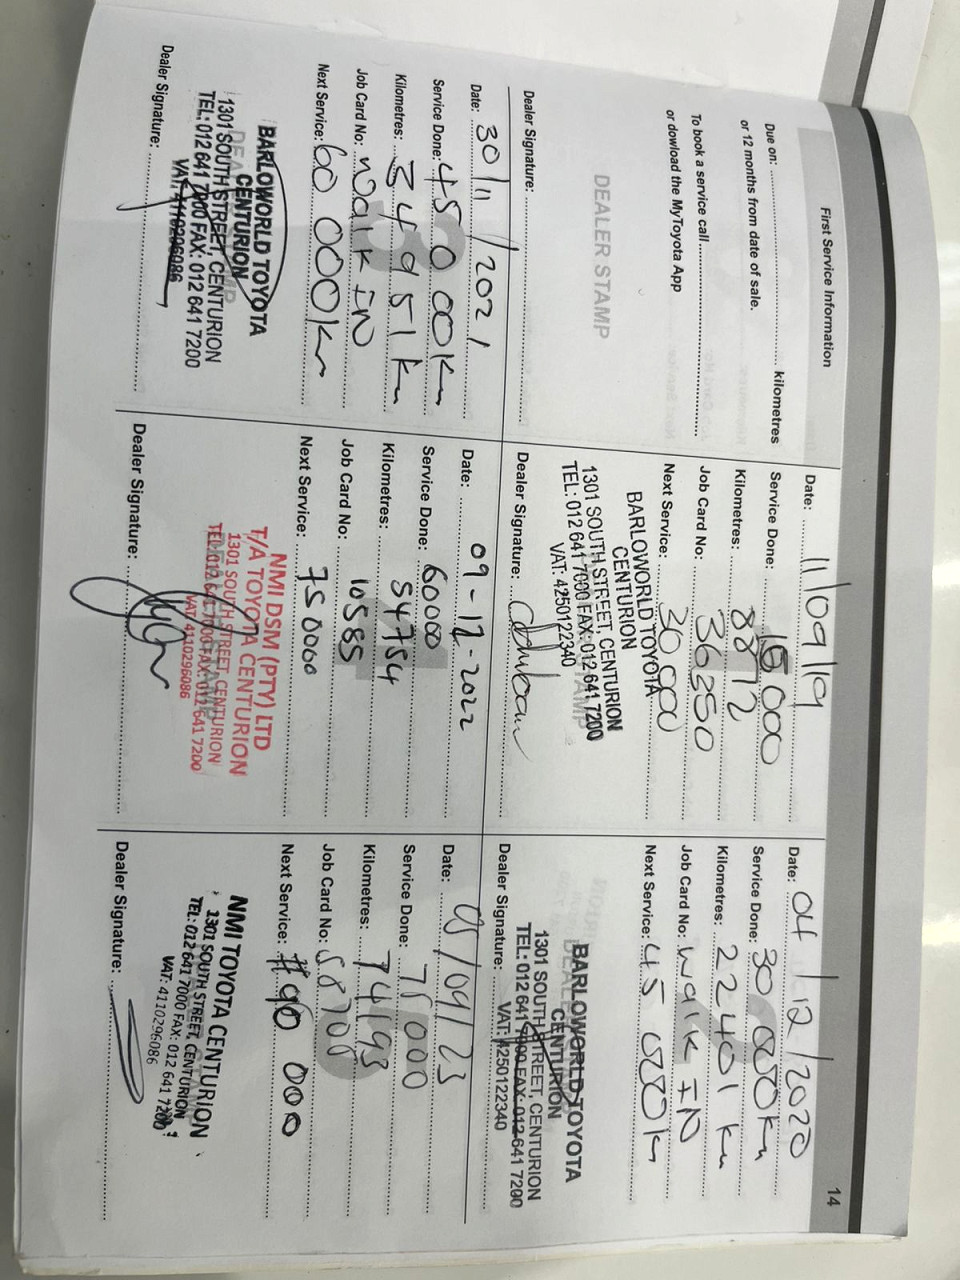 First Service Information
14
Due on: kilometres
or 12 months from date of sale.
To book a service call
or dowload the MyToyota App
DEALER STAMP
Dealer Signature:
Date: 11/09/19
Service Done: 15000
Kilometres: 8872
Job Card No: 36250
Next Service: 30 000
BARLOWORLD TOYOTA
CENTURION
1301 SOUTH STREET, CENTURION
TEL: 012 641 7000 FAX: 012 641 7200
VAT: 4250122340
Dealer Signature:
Date: 04/12/2020
Service Done: 30 000km
Kilometres: 22401 km
Job Card No: Walk IN
Next Service: 45 000km
BARLOWORLD TOYOTA
CENTURION
1301 SOUTH STREET, CENTURION
TEL: 012 641 7000 FAX: 012 641 7200
VAT: 4250122340
Dealer Signature:
Date: 30/11/2021
Service Done: 45 000km
Kilometres: 34951km
Job Card No: Walk IN
Next Service: 60 000km
BARLOWORLD TOYOTA
CENTURION
1301 SOUTH STREET, CENTURION
TEL: 012 641 7000 FAX: 012 641 7200
VAT: 4110296086
Dealer Signature:
Date: 09-12-2022
Service Done: 60000
Kilometres: 54754
Job Card No: 10585
Next Service: 750000
NMI DSM (PTY) LTD
T/A TOYOTA CENTURION
1301 SOUTH STREET, CENTURION
TEL: 012 641 7000 FAX: 012 641 7200
VAT: 4110296086
Dealer Signature:
Date: 05/09/23
Service Done: 75000
Kilometres: 74193
Job Card No: 58708
Next Service: 90 000
NMI TOYOTA CENTURION
1301 SOUTH STREET, CENTURION
TEL: 012 641 7000 FAX: 012 641 7200
VAT: 4110296086
Dealer Signature: